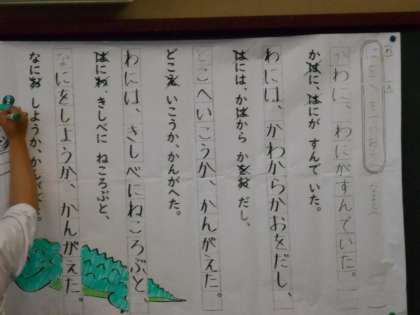 かわに、わにがすんでいた。
かはに、はにが すんで いた。
わには、かわからかおをだし、
はには、かはから かをお だし、
どこへいこうか、かんがえた。
どこえ いこうか、かんがへた。
わには、きしべにねころぶと、
はにわ、きしべに ねころぶと、
なにをしようか、かんがえた。
なにお しようか、かん